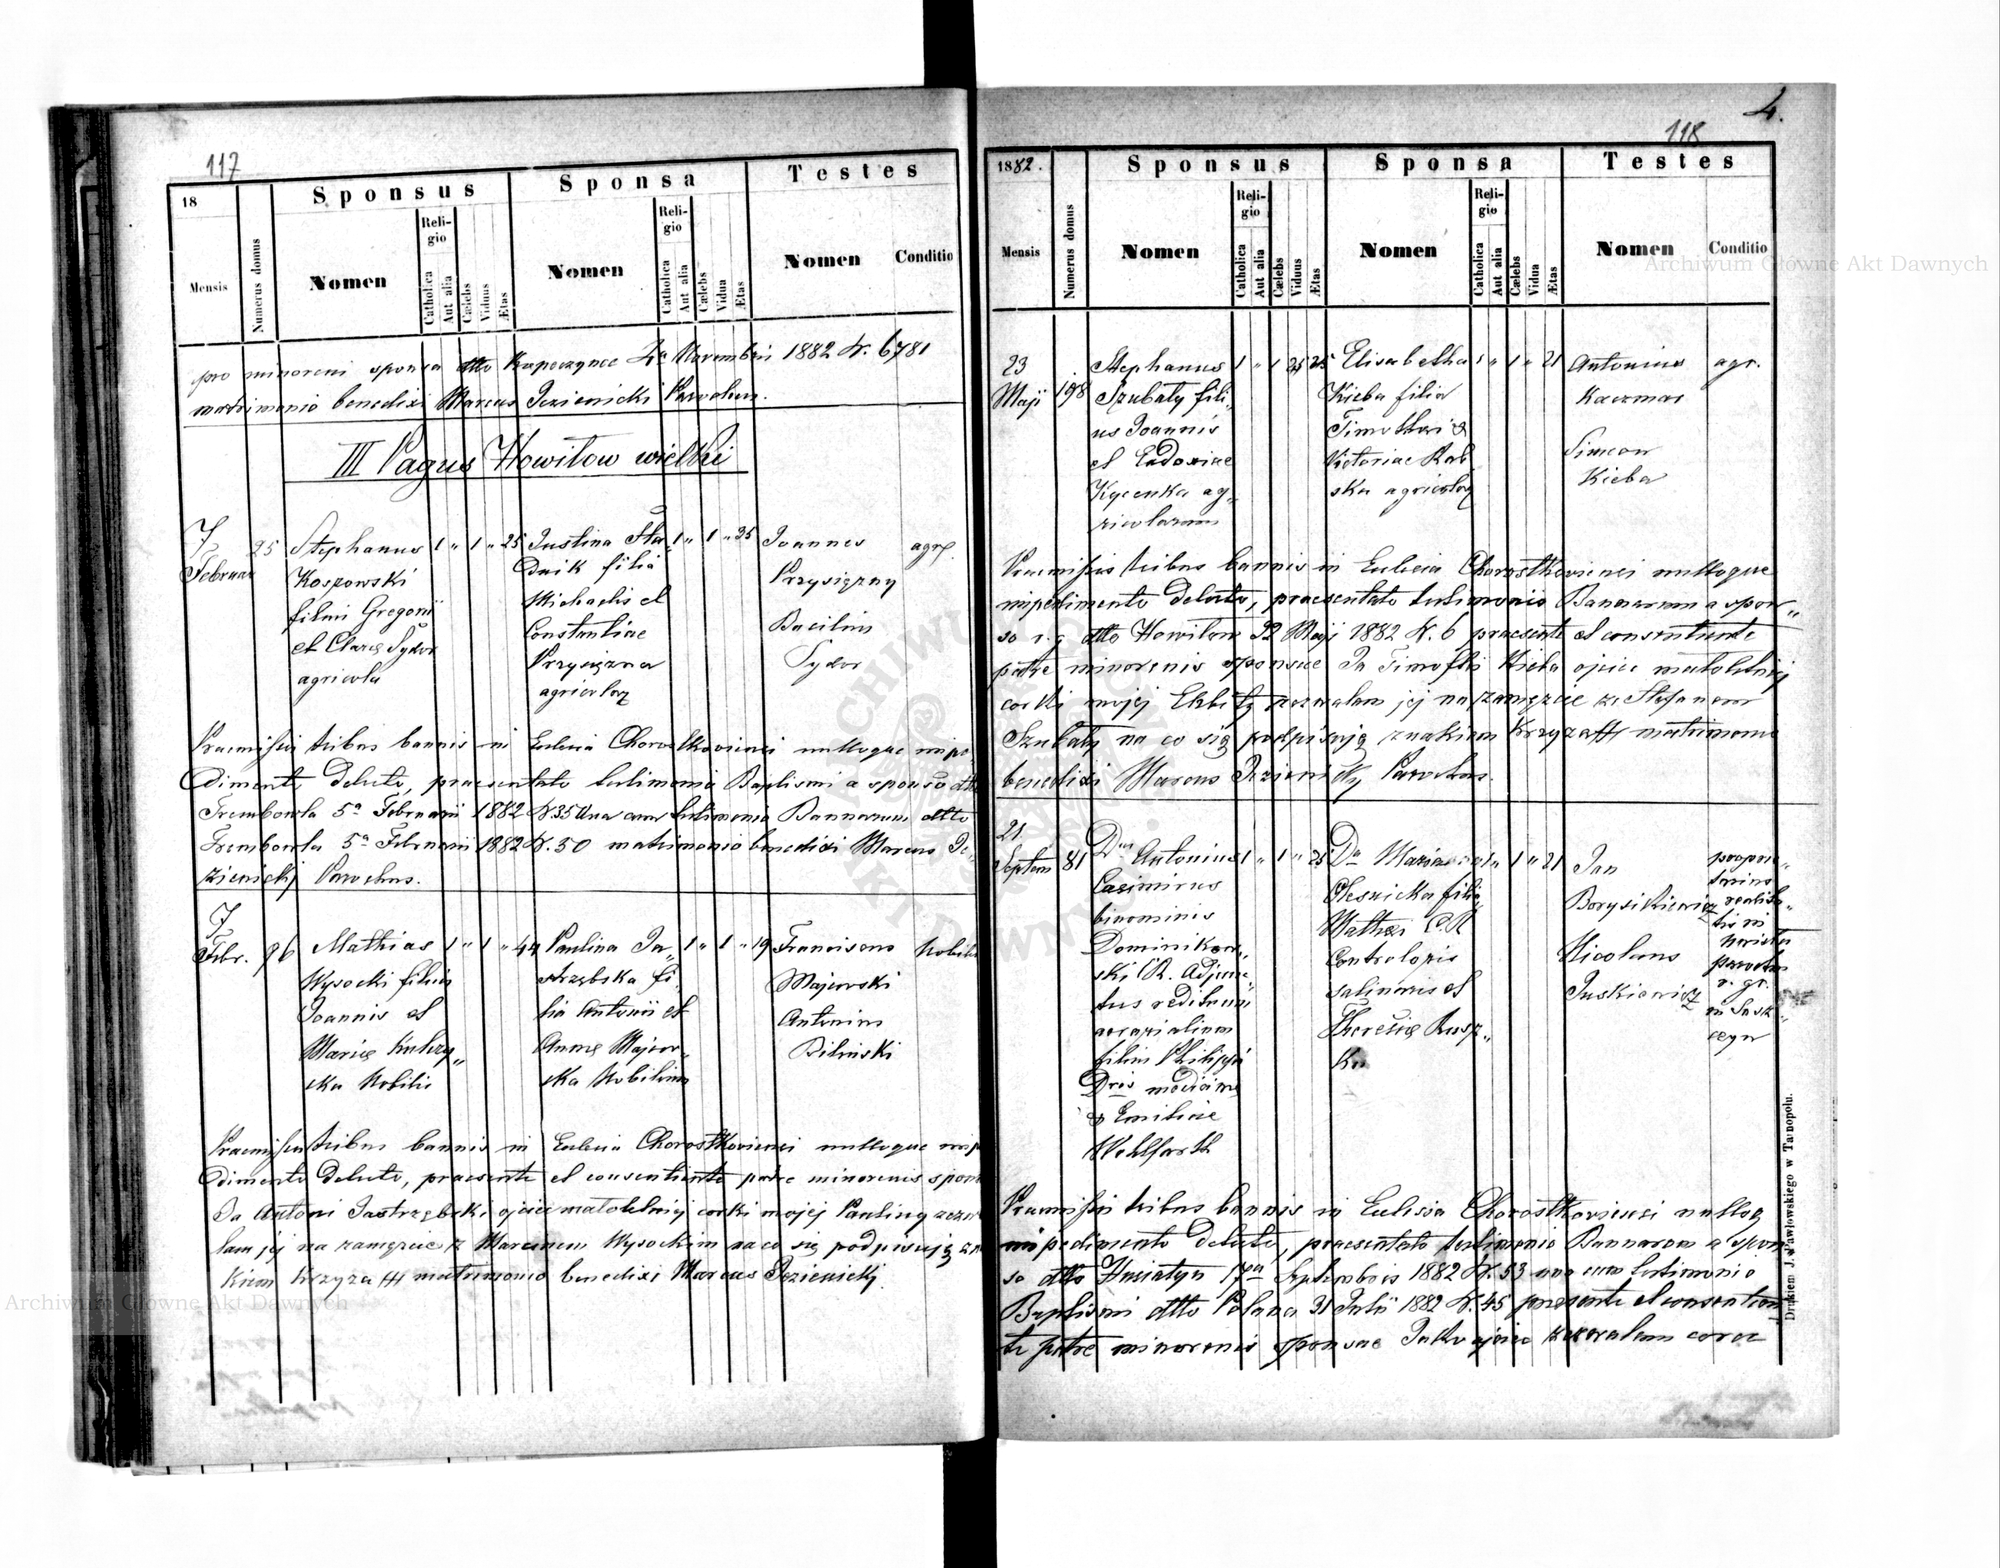 117
18
Mensis
Numerus domus
Sponsus
Nomen
Religio
Catholica
Aut alia
Cælebs
Viduus
Ætas
Sponsa
Nomen
Religio
Catholica
Aut alia
Cælebs
Vidua
Ætas
Testes
Nomen
Conditio
pro minoreni sponsa dtto Kopeczynce Novembri 1882 N. 6781
matrimonio benedixi Marcus Jezienicki Parochus.
III Pagus Howilow wielki
7 Februar
25
Stephanus
Koszowski
filius Gregorii
et Claræ Sydor
agricola
1 " 1 " 25
Justina
filia
Michaelis et
Constantiae
Przysięzna
agricolar
1 " 1 " 25
Joannes
Przysięzny
Bacilius
Sydor
agr.
Praemissis tribus bannis in Eclesia Chorostkoviensi nulloque impe
dimento detecto, praesentato testimonio Baptismi a sponso dtto
Trembowla 5a Februarii 1882 N. 35 una cum testimonio Bannorum dtto
Trembowla 5a Februarii 1882 N. 50 matrimonio benedixi Marcus Je
zienicki Parochus.
7 Febr.
96
Mathias
Wysocki filius
Joannis et
Mariæ
ska Nobilis
1 " 1 " 44
Paulina Ja„
strzębska fi„
lia Antonii et
Annæ Majew„
ska Nobilium
1 " 1 " 19
Franciscus
Majewski
Antonius
Biliński
Nobiles
Praemissis tribus bannis in Eclesia Chorostkoviensi nulloque imp
dimento detecto, praesente et consentiente patre minorenis spon
Ja Antoni Jastrzębski ojciec małoletniej corki mojej Pauliny zezw
lam jej na zamęzcie z Marcinem Wysockim na co się podpisuję zn
kiem Krzyza ††† matrimonio benedixi Marcus Jezienicki.
4.
118
1882.
Mensis
Numerus domus
Sponsus
Nomen
Religio
Catholica
Aut alia
Cælebs
Viduus
Ætas
Sponsa
Nomen
Religio
Catholica
Aut alia
Cælebs
Vidua
Ætas
Testes
Nomen
Conditio
23
Maji
198
Stephanus
Szubaty fili„
us Joannis
et Eudoxiae
Kycenka ag„
ricolarum
1 " 1 25 25
Elisabetha
Kieba filia
Timothei &
Victoriae Rab
ska agricolar
1 " 1 " 21
Antonius
Kaczmar
Simeon
Kieba
agr.
Praemissis tribus bannis in Eclesia Chorostkoviensi nulloque
impedimento detecto, praesentato testimonio Bannorum a spon„
so r. g dtto Howilow 22 Maji 1882 N. 6 praesente et consentiente
patre minorenis sponsae Ja Timofti Kieba ojciec małoletniej
corki mojej Elzbiety zezwalam jej na zamęzcie ze Stefanem
Szubaty na co się podpisuję znakiem Krzyza ††† matrimonio
benedixi Marcus Jezienicky Parochus.
21
Septem
81
Dnus Antonius
Casimirus
binominis
Dominikow„
ski C.R. Adjunc„
tus redituum
aerarialium
filius Philippi
Dris medicinæ
& Emiliae
Wohlfarth
1 " 1 " 25
Da Maria
Olesnicka filia
Mathei C.R
Controloris
salinaris et
Theresiæ Rusz„
Ka
1 " 1 " 21
Jan
Borysikiewicz
Nicolaus
Juskiewicz
propri„
tarius
realita„
tis in
parochus
r. gr.
Praemissis tribus bannis in Eclesia Chorostkoviensi nulloq
impedimento detecto, praesentato testimonio Bannorum a spon
so dtto Husiatyn 17ma Septembris 1882 N. 53 una cum testimonio
Baptismi dtto Polana 31 Julii 1882 N. 45 praesente et consentien
te patre minorenis sponsae Jako ojciec zezwalam corce
Drukiem J. Pawłowskiego w Tarnopolu.
Archiwum Główne Akt Dawnych
Archiwum Główne Akt Dawnych